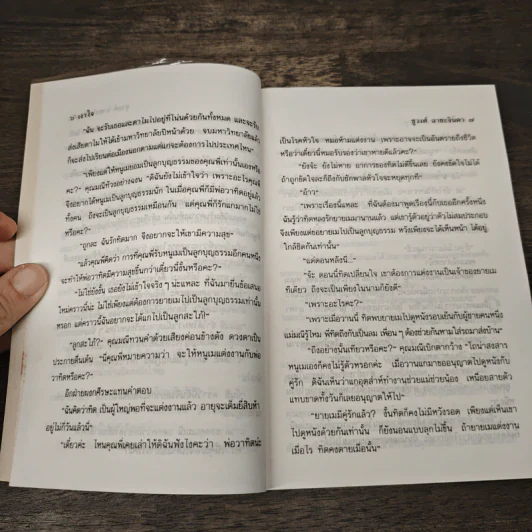 ๖ เจาใจ
"ฉัน จะรับเธอและตาโมไปอยู่ที่โน่นด้วยกันทั้งหมด และจะรับ
ส่งเสียตาโมให้ได้เข้ามหาวิทยาลัยปีหน้าด้วย จบมหาวิทยาลัยแล้ว
ก็จะส่งไปเรียนต่อเมืองนอกตามแต่แกจะต้องการไปประเทศไหน"
"เพียงแต่ให้หนูเมยอมเป็นลูกบุญธรรมของคุณพี่เท่านั้นเองหรือ
คะ?" คุณมณีทวงอย่างฉงน "ดิฉันยังไม่เข้าใจว่า เพราะอะไรคุณพี่
จึงอยากได้หนูเมเป็นลูกบุญธรรมนัก ในเมื่อคุณพี่ก็มีพ่อวาทิตอยู่แล้ว
ทั้งคน ถึงจะเป็นลูกบุญธรรมเหมือนกัน แต่คุณพี่ก็รักแกมากไม่ใช่
หรือคะ?"
"ถูกละ ฉันรักทิตมาก จึงอยากจะให้เขามีความสุข"
"แล้วคุณพี่คิดว่า การที่คุณพี่รับหนูเมเป็นลูกบุญธรรมอีกคนหนึ่ง
จะทำให้พ่อวาทิตมีความสุขขึ้นกว่าเดี๋ยวนี้ขึ้นหรือคะ?"
"ไม่ใช่ยังงั้น เธอยังไม่เข้าใจจริง ๆ น่ะแหละ ที่ฉันมายื่นข้อเสนอ
ใหม่คราวนี้น่ะ ไม่ใช่เพียงแต่ต้องการยายเมไปเป็นลูกบุญธรรมเท่านั้น
หรอก แต่คราวนี้ฉันอยากจะได้แกไปเป็นลูกสะใภ้!"
"ลูกสะใภ้?" คุณมณีทวนคำด้วยเสียงค่อนข้างดัง ดวงตาเป็น
ประกายตื่นเต้น "นี่คุณพี่หมายความว่า จะให้หนูเมแต่งงานกับพ่อ
วาทิตหรือคะ?"
อีกฝ่ายผงกศีรษะแทนคำตอบ
"ฉันคิดว่าทิต เป็นผู้ใหญ่พอที่จะแต่งงานแล้ว อายุจะเต็มยี่สิบห้า
อยู่ไม่กี่วันแล้วนี่"
"เดี๋ยวค่ะ ไหนคุณพี่เคยเล่าให้ดิฉันฟังไงคะว่า พ่อวาทิตน่ะ
ชูวงศ์ ฉายะจินดา ๗
เป็นโรคหัวใจ หมอห้ามแต่งงาน เพราะอาจจะเป็นอันตรายถึงชีวิต
หรือว่าเดี๋ยวนี้หมอรับรองว่าเขาหายดีแล้วคะ?"
"ยังจ้ะ ยังไม่หาย อาการของทิตไม่ดีขึ้นเลย ยังคงขัดใจไม่ได้
ถ้าถูกขัดใจละก็ถึงกับชักพาลหัวใจจะหยุดทุกที"
"อ้าว"
"เพราะเรื่องนี้แหละ ที่ฉันต้องมาพูดเรื่องนี้กับเธออีกครั้งหนึ่ง
ฉันรู้ว่าทิตหลงรักยายเมมานานแล้ว แต่เขารู้ตัวอยู่ว่าตัวไม่สมประกอบ
จึงเพียงแต่ขอยายเมไปเป็นลูกบุญธรรม หวังเพียงจะได้เห็นหน้า ได้อยู่
ใกล้ชิดกันเท่านั้น"
"แต่ตอนหลังนี่..."
"จ้ะ ตอนนี้ทิตเปลี่ยนใจ เขาต้องการแต่งงานเป็นเจ้าของยายเม
ทีเดียว ถึงจะเป็นเพียงในนามก็ยังดี"
"เพราะอะไรคะ?"
"เพราะเมื่อวานนี้ ทิตพบยายเมไปดูหนังรอบเย็นกับผู้ชายคนหนึ่ง
แม่มณีรู้ไหม พี่ทิตถึงกับเป็นลม เพื่อน ๆ ต้องช่วยกันหามใส่รถมาส่งบ้าน"
"ถึงอย่างนั้นเทียวหรือคะ?" คุณมณีเบิกตากว้าง "โถน่าสงสาร
หนูเมเองก็คงไม่รู้ตัวหรอกค่ะ เมื่อวานแกมาขออนุญาตไปดูหนังกับ
คู่รัก ดิฉันเห็นว่าแกอุตส่าห์ทำงานช่วยแม่ช่วยน้อง เหนื่อยสายตัว
แทบขาดทั้งวันก็เลยอนุญาตให้ไป"
"ยายเมมีคู่รักแล้ว? งั้นทิตก็คงไม่มีหวังรอด เพียงแต่เห็นเขา
ไปดูหนังด้วยกันเท่านั้น ก็ยังนอนแบบลุกไม่ขึ้น ถ้ายายเมแต่งงาน
เมื่อไร ทิตคงตายเมื่อนั้น"